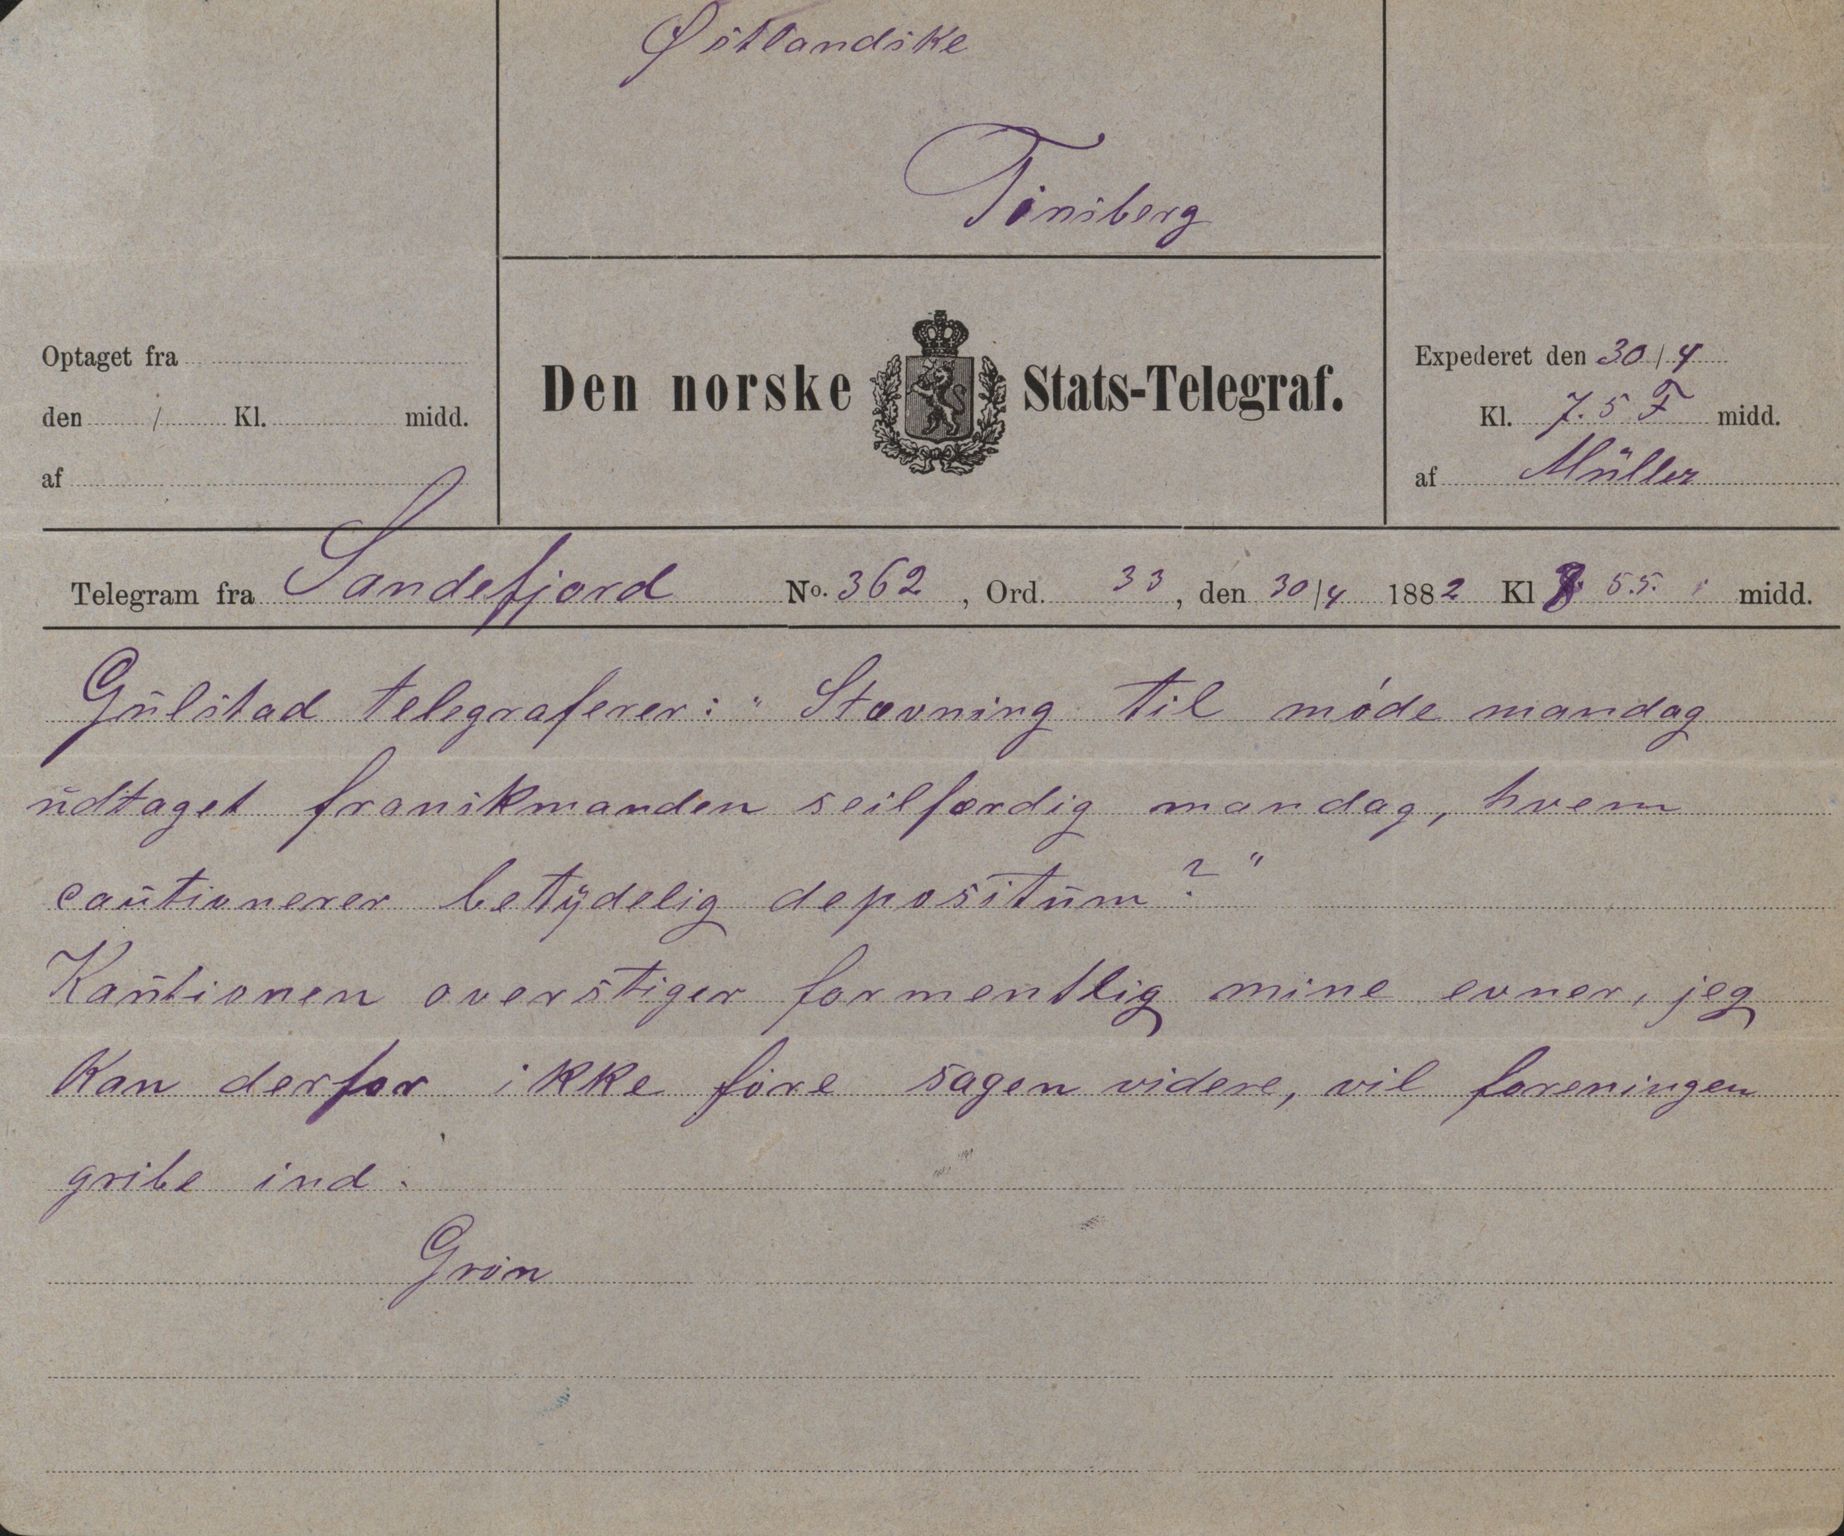 Østlandske
Tönsberg
Optaget fra
den / Kl. midd.
af
Den norske Stats-Telegraf.
Expederet den 30/4
Kl. 7.5 F midd.
af Müller
Telegram fra Sandefjord No. 362, Ord. 33, den 30/4 1882 Kl 55. midd.
Gulstad telegraferer: " Stævning til møde mandag
udtaget franskmanden seilfærdig mandag, hvem
cautionerer betydelig depositum? "
Kautionen overstiger formentlig mine evner, jeg
kan derfor ikke føre sagen videre, vil foreningen
gribe ind.
Grøn